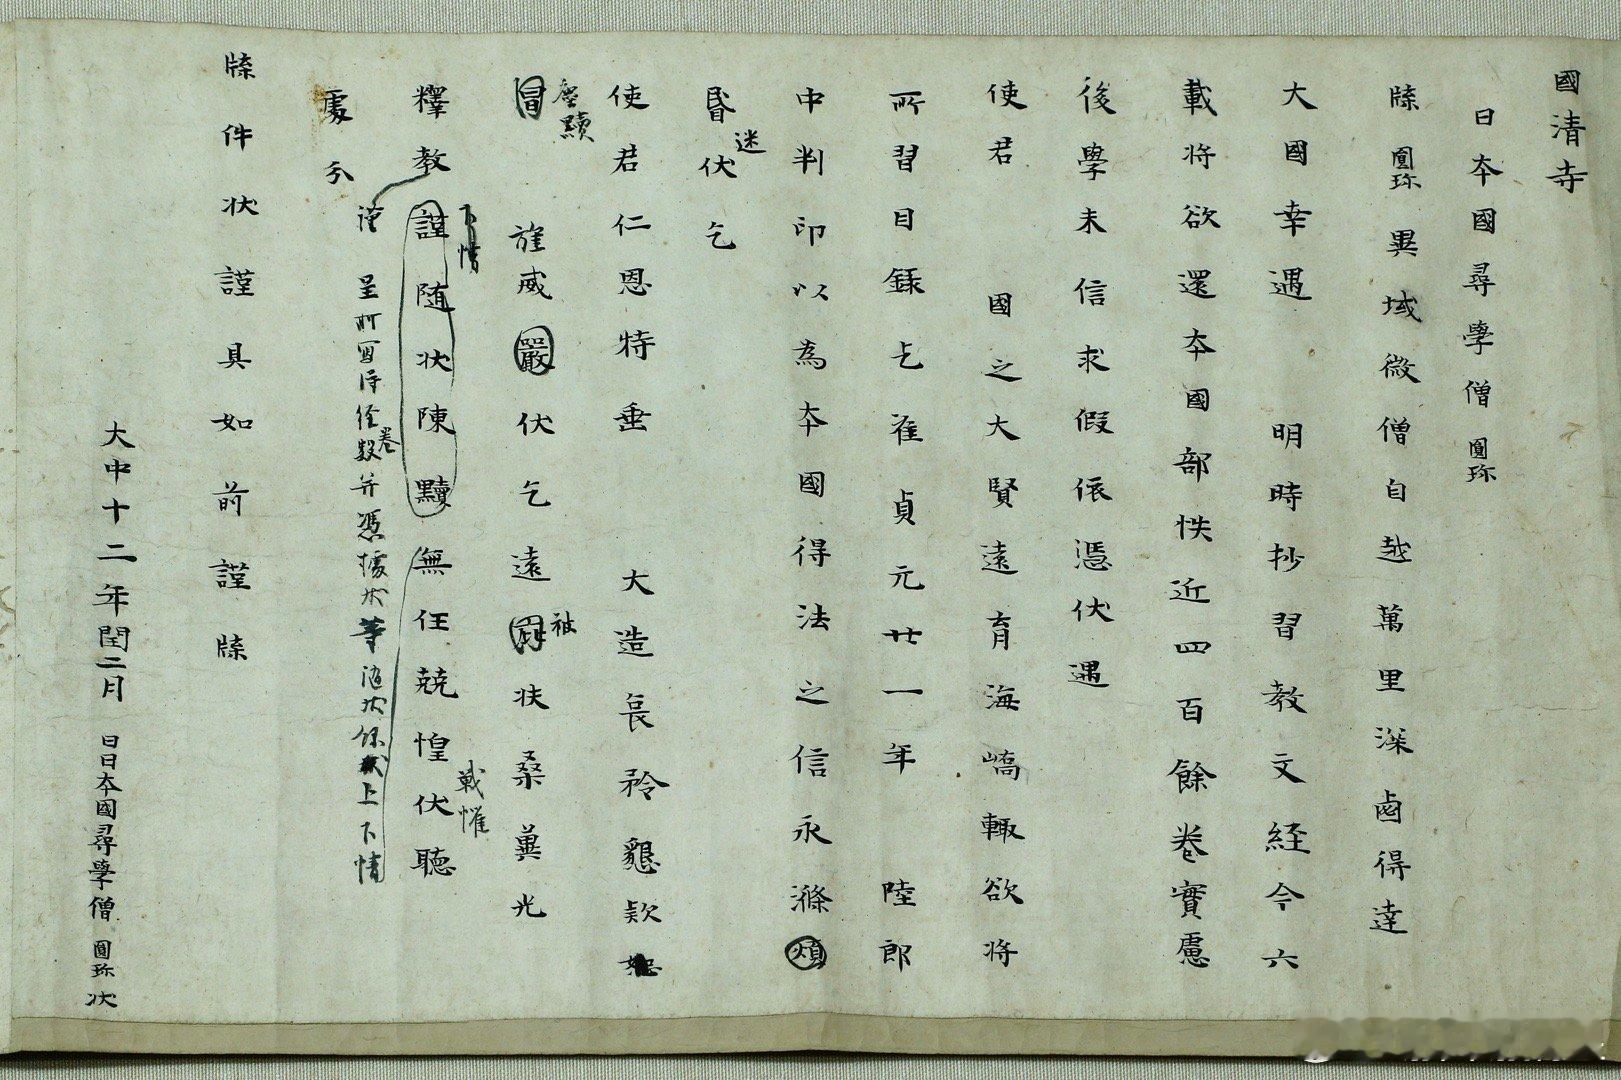 國清寺
日夲國尋學僧圓珎
牒圓珎異域微僧自越萬里深凾得達
大國幸遇 明時抄習教文経今六
載将欲還夲國部帙近四百餘卷實慮
後學未信求假依憑伏遇
使君 國之大賢遠育海嶠輙欲将
所習目録乞准貞元廿一年 陸郎
中判印以為夲國得法之信永滌煩
昏迷伏乞
使君仁恩特垂 大造哀矜懇欵
塵黷
冒 旌威嚴伏乞遠 状桒蕳光
袖
釋教謹随状陳黷無任兢惶伏聽
下情
戰懼
謹 呈所写得経卷數并憑據状等随状録上下情
處分
牒件状謹具如前謹牒
大中十二年閏二月 日日夲國尋學僧圓珎状